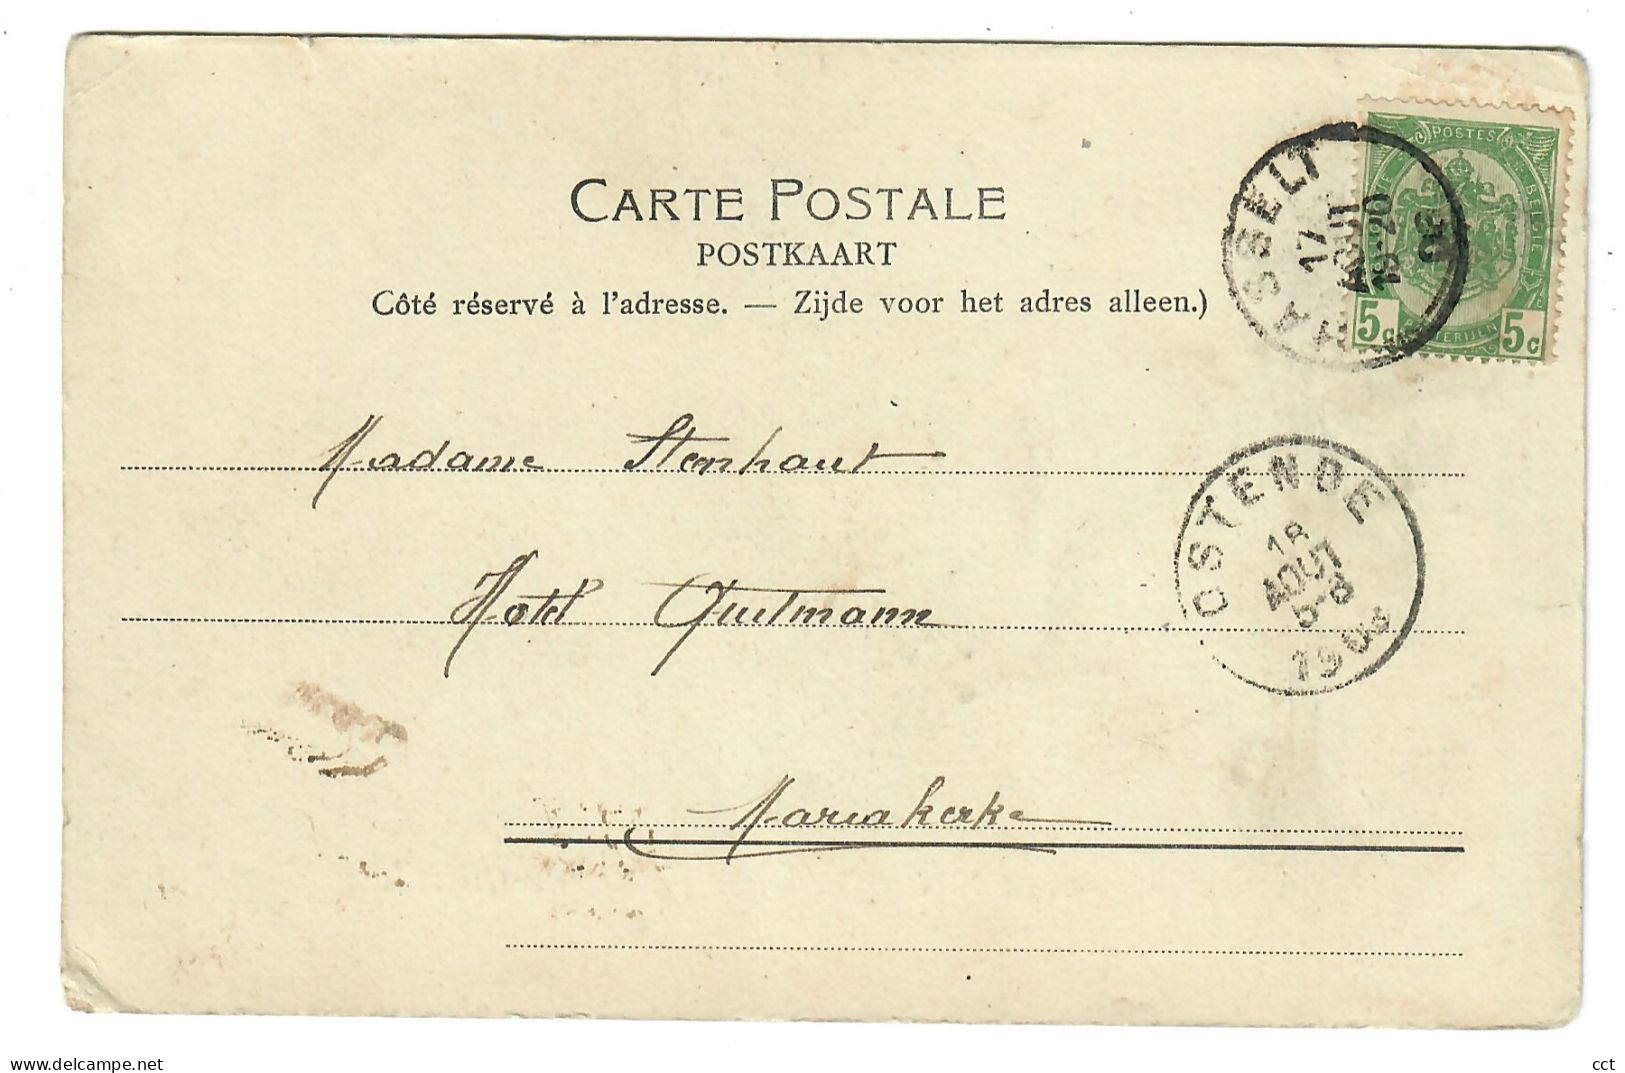 CARTE POSTALE
POSTKAART
Côté réservé à l'adresse. — Zijde voor het adres alleen.)
POSTES
BELGIE
5c 5c
HASSELT
17
AOUT
19-20
Madame Steenhaut
OSTENDE
18
AOUT
5-8
1903
Hotel Quitmann
Mariakerke
delcampe.net
cct